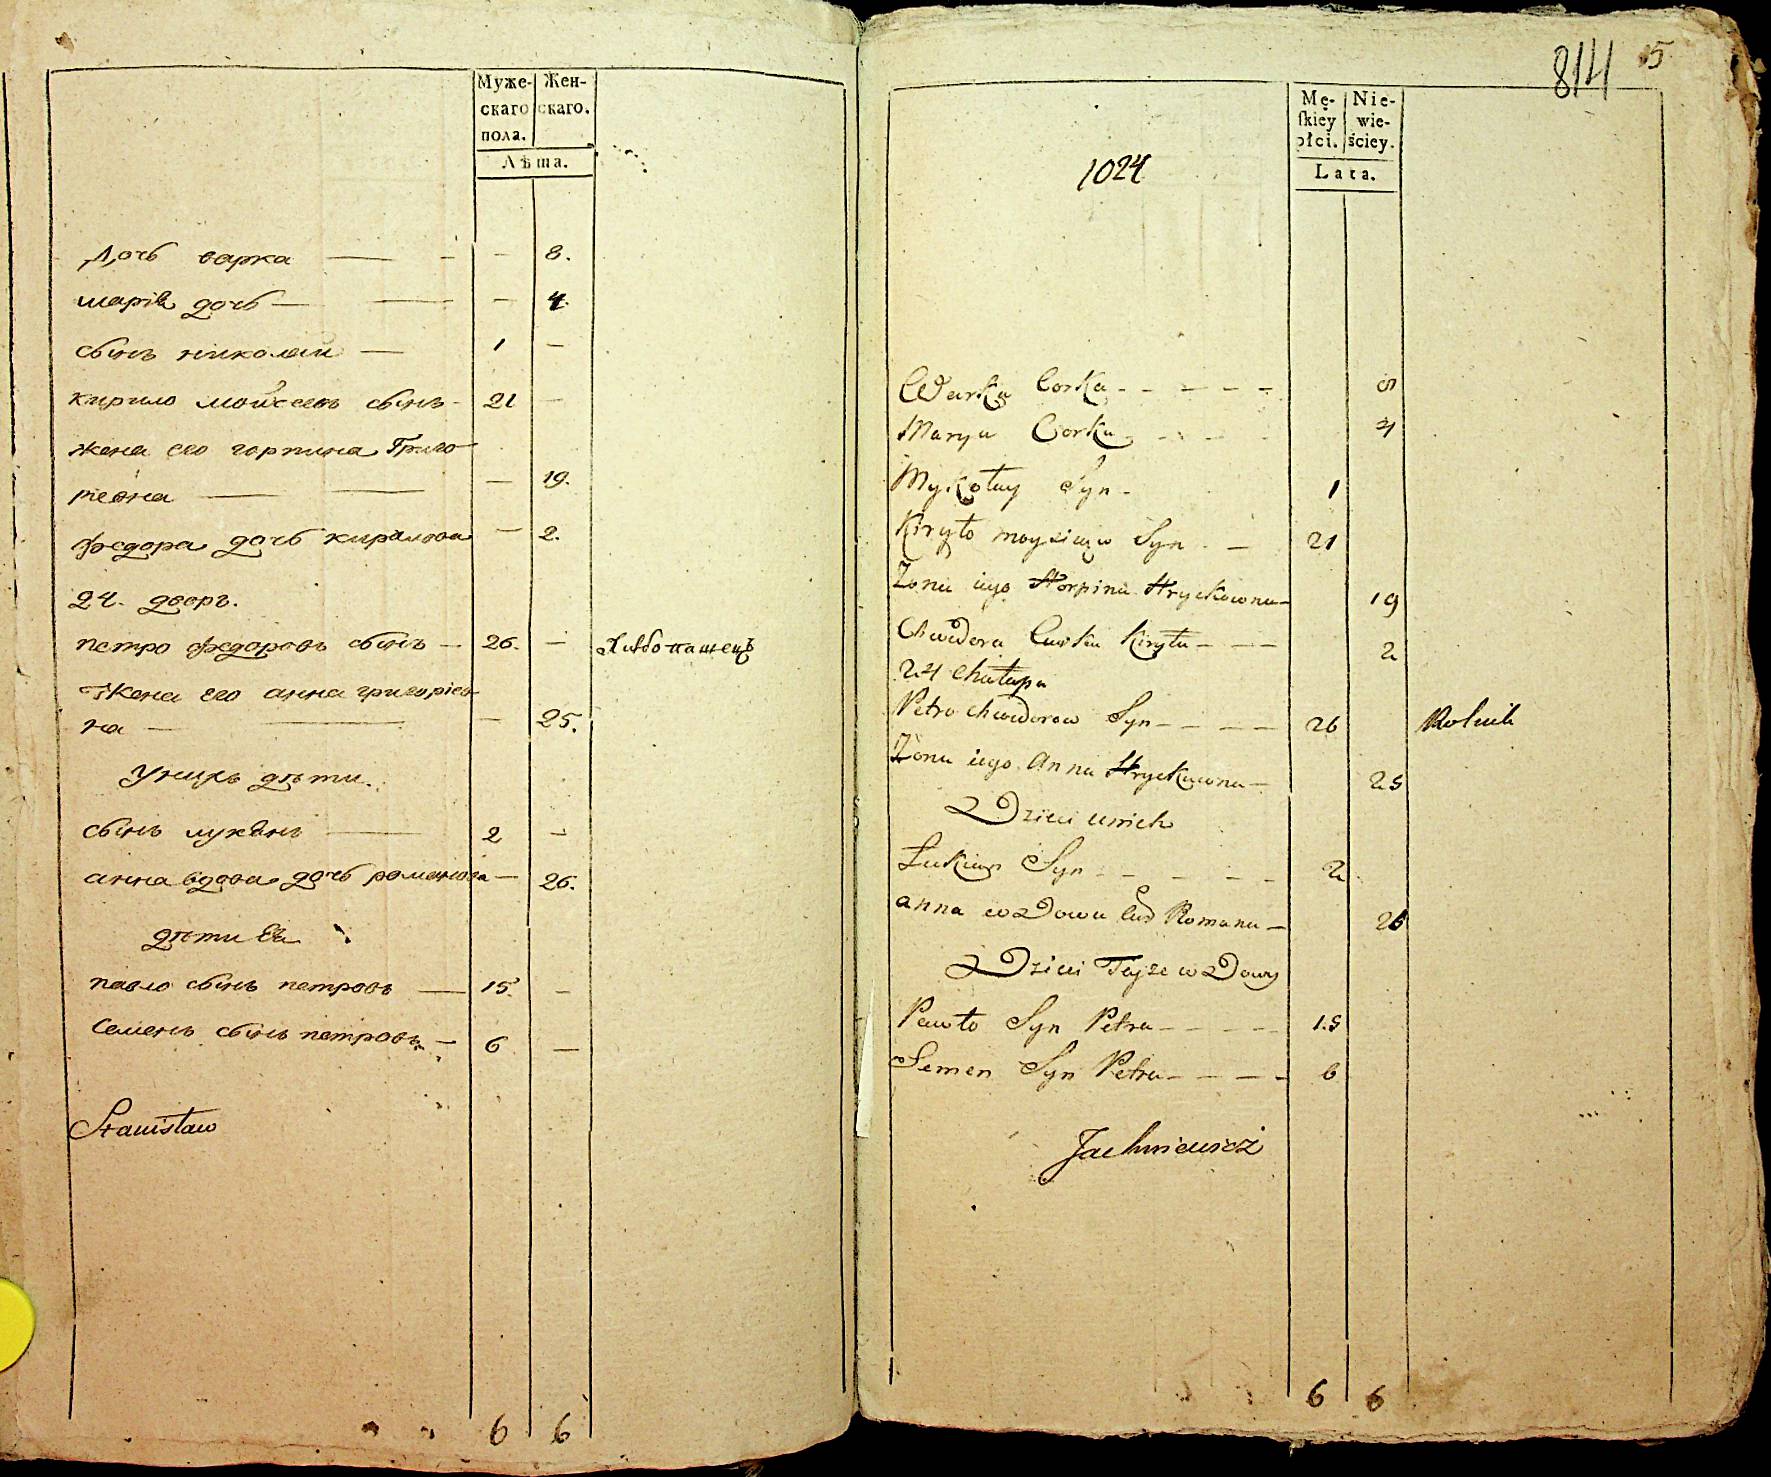 Муже-
скаго
пола.
Жен-
скаго.
Лѣта.
Дочь варка — - - 8.
марія дочь — — - 4.
сынъ николай — 1 -
кирило мойсеевъ сынъ - 21 -
жена его горпина Григо
риевна — — - 19.
федора дочь кирилова - 2.
24. дворъ.
петро федоровъ сынъ - 26. - Хлѣбопашецъ
Жена его анна григоріев
на — — - 25.
У нихъ дѣти.
сынъ лукянъ — 2 -
анна вдова дочь романова - 26.
дѣти Ея
павло сынъ петровъ — 15. -
Семенъ сынъ петровъ - 6 -
Stanisław
6 6
814 15
1024
Mę-
skiey
płci.
Nie-
wie-
ściey.
Lata.
Warka Corka - - - - - 8
Marya Corka - - - - 4
Mykołay Syn - 1
Kiryło moysieiow Syn - - 21
Żona iego Horpina Hryckowna - 19
Chwedora Curka Kiryła - - - 2
24 Chałupa
Petro Chwedorow Syn - - - - 26 Rolnik
Żona iego Anna Hryckowna - 25
Dzieci u nich
Łukian Syn - - - - - 2
anna wdowa Romana - 26
Dzieci Tejże wdowy
Pawło Syn Petra - - - - 15
Semen Syn Petra - - - - 6
Jachniewicz
6 6